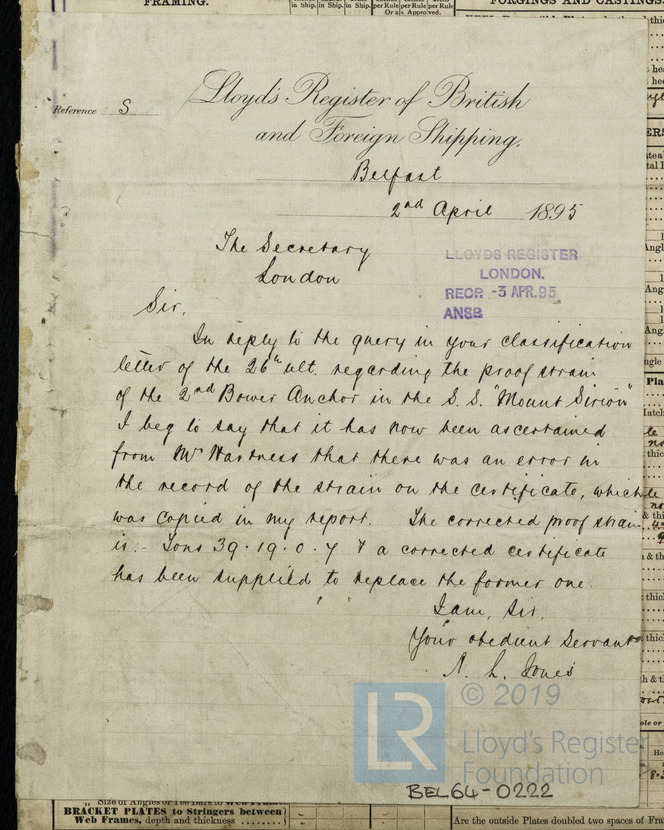 FRAMING.
in Ship.
in Ship.
in Ship.
per Rule
per Rule
per Rule
Or as Approved.
FORGINGS AND CASTINGS.
Lloyd's Register of British
and Foreign Shipping.
Reference S
Belfast
2nd April 1895
The Secretary
London
LLOYDS REGISTER
LONDON.
RECD -3 APR.95
ANSD
Sir,
In reply to the query in your classification
letter of the 26th ult. regarding the proof strain
of the 2nd Bower Anchor in the S.S. "Mount Sirion"
I beg to say that it has now been ascertained
from Mr Hartness that there was an error in
the record of the strain on the certificate, which
was copied in my report. The corrected proof strain
is:- Tons 39.19.0.7 & a corrected certificate
has been supplied to replace the former one.
I am, Sir,
Your obedient Servant
A. L. Jones
© 2019
LR
Lloyd's Register
Foundation
BEL64-0222
BRACKET PLATES to Stringers between
Web Frames, depth and thickness
Are the outside Plates doubled two spaces of Fra